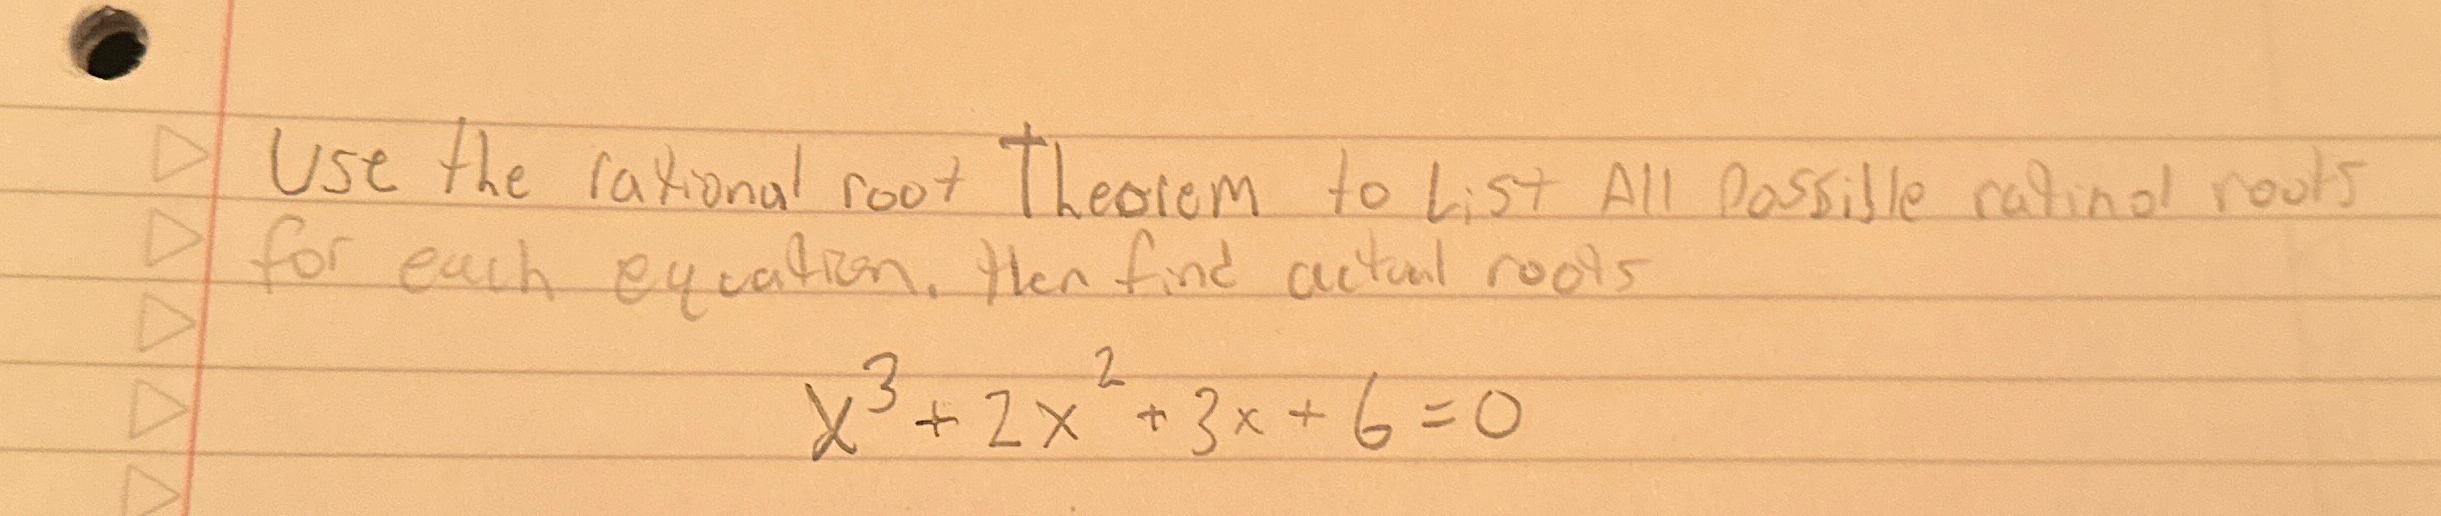 Use the rational root Theorem to List All Possible ratinal roots
for each equation. then find actual roots
x³ + 2x² + 3x + 6 = 0